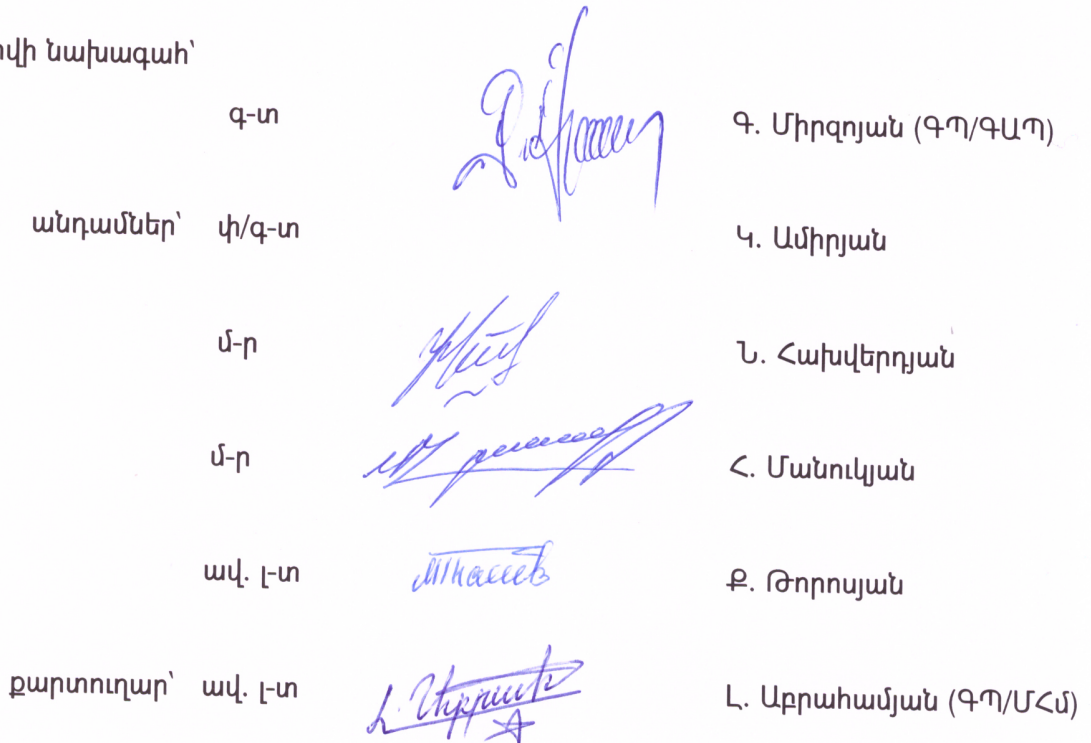 վի նախագահ՝
գ-տ Գ. Միրզոյան (ԳՊ/ԳԱՊ)
անդամներ՝ փ/գ-տ Կ. Ամիրյան
մ-ր Ն. Հախվերդյան
մ-ր Հ. Մանուկյան
ավ. լ-տ Ք. Թորոսյան
քարտուղար՝ ավ. լ-տ Լ. Աբրահամյան (ԳՊ/ՄՀմ)